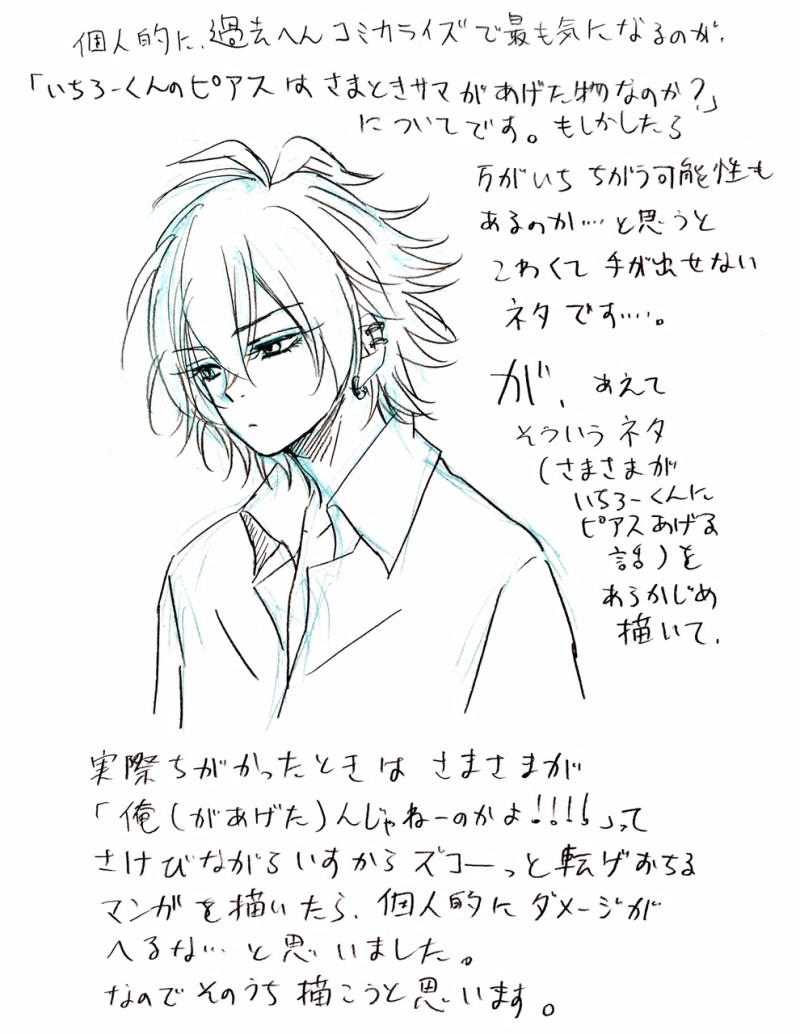 個人的に、過去へんコミカライズで最も気になるのが、
「いちろーくんのピアスはさまときサマがあげた物なのか?」
についてです。もしかしたら
万がいち ちがう可能性も
あるのか…と思うと
こわくて 手が出せない
ネタです…。
が、あえて
そういうネタ
(さまさまが
いちろーくんに
ピアスあげる
話)を
あらかじめ
描いて、
実際ちがかったときは さまさまが
「俺(があげた)んじゃねーのかよ!!!!」って
さけびながらいすからズコーっと転げおちる
マンガを描いたら、個人的にダメージが
へるな…と思いました。
なのでそのうち描こうと思います。